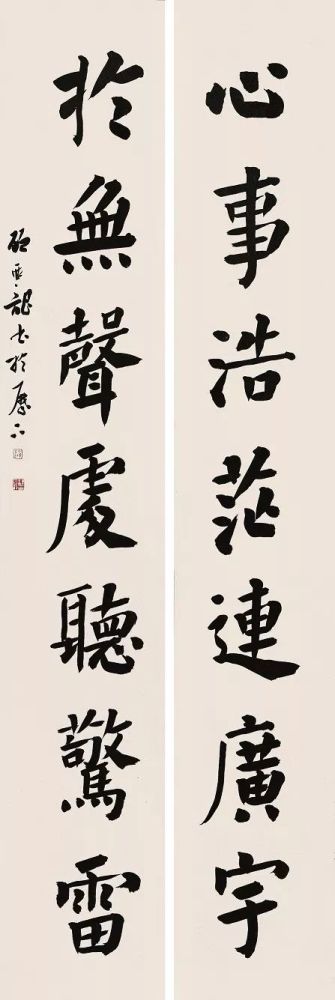 心事浩茫連廣宇
於無聲處聽驚雷
書於歷下